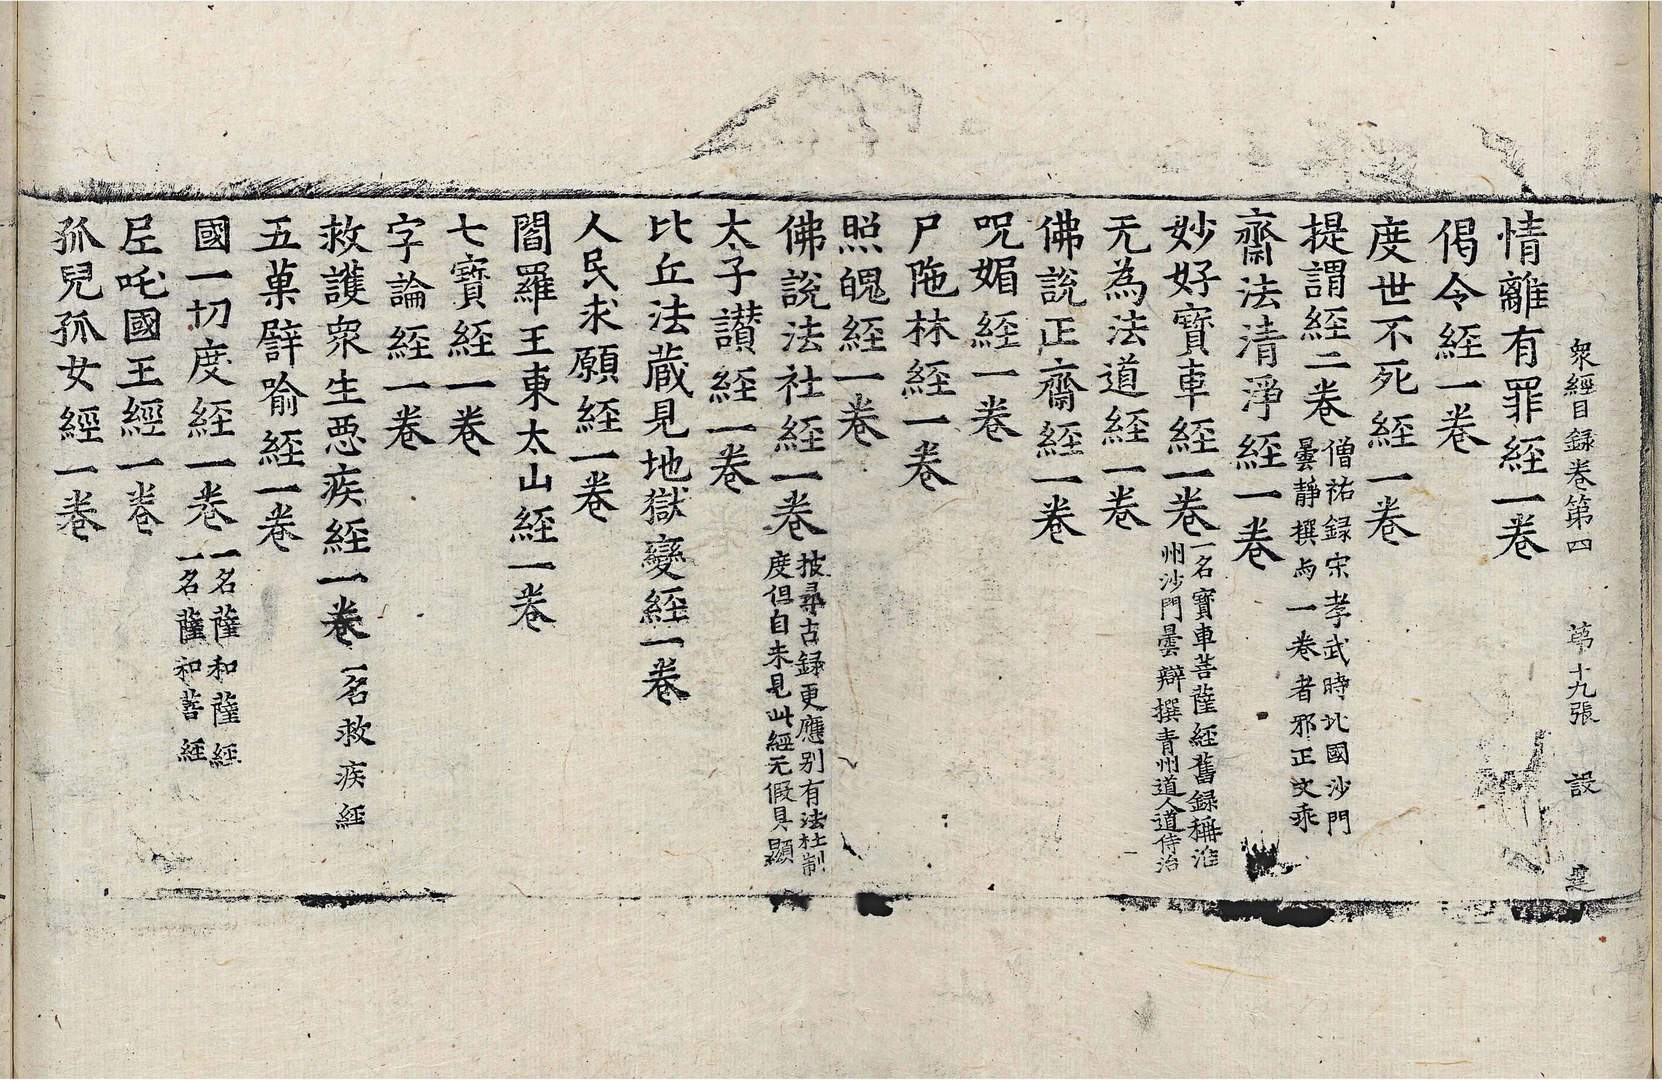 衆經目録卷第四 第十九張 設
情離有罪経一卷
偈令経一卷
度世不死経一卷
提謂経二卷 僧祐録宋孝武時北國沙門
曇靜撰与一卷者邪正文乖
齋法清淨経一卷
妙好寶車経一卷 一名寶車菩薩経舊録稱淮
州沙門曇辯撰青州道人道侍治
无為法道経一卷
佛說正齋経一卷
呪媚経一卷
尸陁林経一卷
照魄経一卷
佛說法社経一卷 披尋古録更應别有法社制
度但自未見此經无假具顯
太子讃経一卷
比丘法藏見地獄變経一卷
人民求願経一卷
閻羅王東太山経一卷
七寶経一卷
字論経一卷
救護衆生惡疾経一卷 一名救疾経
五菓譬喻経一卷
國一切度経一卷 一名薩和薩経
一名薩和菩経
𡰱吒國王經一卷
孤兒孤女經一卷